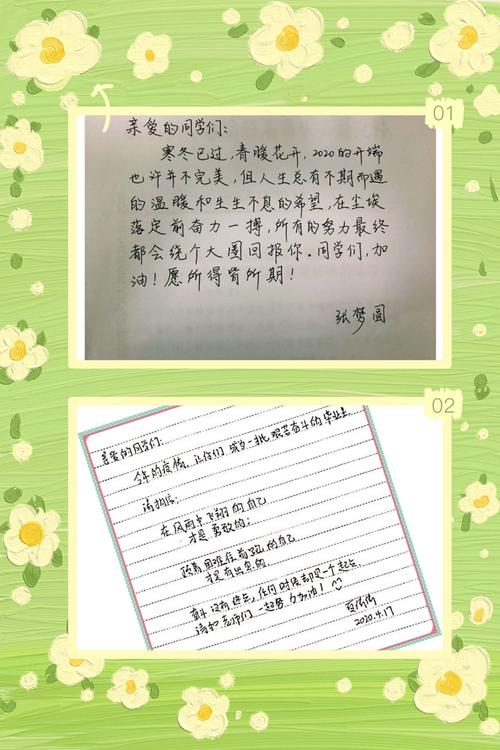 01
亲爱的同学们:
寒冬已过,春暖花开,2020的开端
也许并不完美,但人生总有不期而遇
的温暖和生生不息的希望,在尘埃
落定前奋力一搏,所有的努力最终
都会绕个大圈回报你。同学们,加
油!愿所得皆所期!
张梦圆
02
亲爱的同学们:
今年的疫情,让你们成为一批艰苦奋斗的毕业生
请相信:
在风雨中飞翔的自己
才是勇敢的;
跨着困难往前跑的自己
才是有出息的
奋斗没有终点,任何时候都是一个起点
请和老师们一起努力加油!
2020.4.17